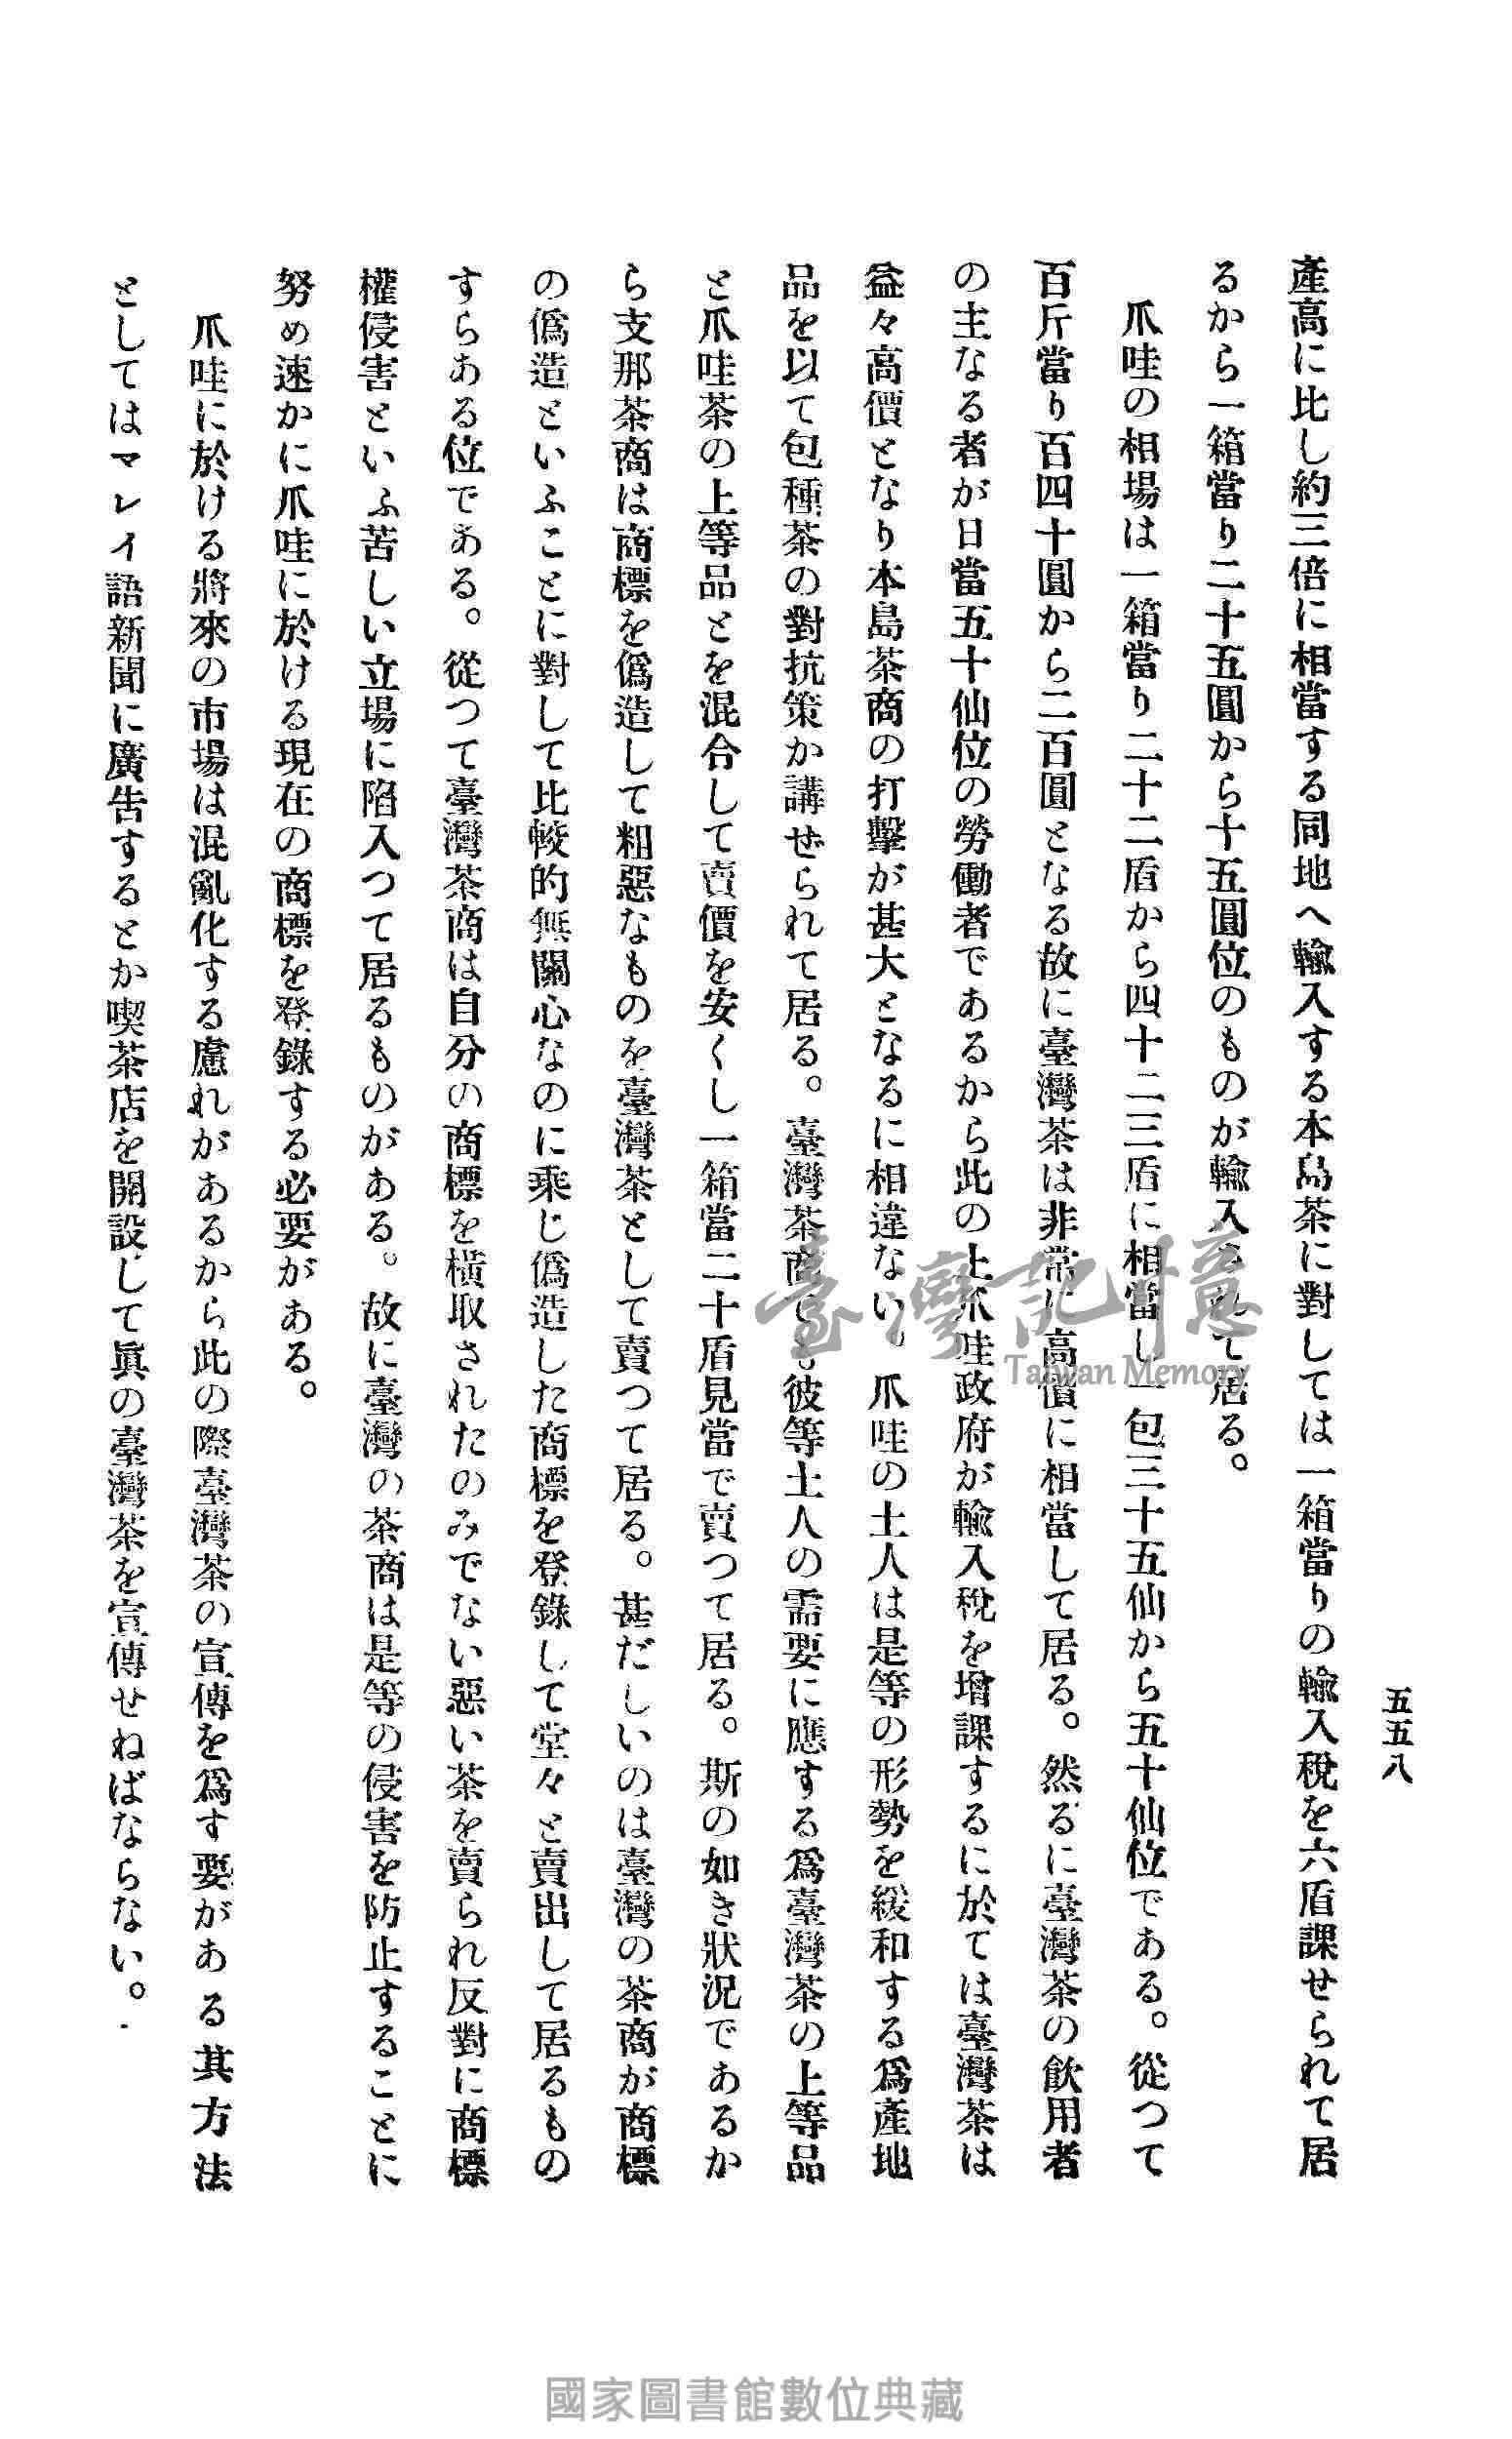 五五八
產高に比し約三倍に相當する同地へ輸入する本島茶に對しては一箱當りの輸入稅を六盾課せられて居
るから一箱當り二十五圓から十五圓位のものが輸入されて居る。
爪哇の相場は一箱當り二十二盾から四十二三盾に相當し一包三十五仙から五十仙位である。從つて
百斤當り百四十圓から二百圓となる故に臺灣茶は非常に高價に相當して居る。然るに臺灣茶の飮用者
の主なる者が日當五十仙位の勞働者であるから此の上爪哇政府が輸入稅を增課するに於ては臺灣茶は
益々高價となり本島茶商の打擊が甚大となるに相違ない。爪哇の土人は是等の形勢を緩和する爲產地
品を以て包種茶の對抗策か講ぜられて居る。臺灣茶商ても彼等土人の需要に應する爲臺灣茶の上等品
と爪哇茶の上等品とを混合して賣價を安くし一箱當二十盾見當で賣つて居る。斯の如き狀況であるか
ら支那茶商は商標を僞造して粗惡なものを臺灣茶として賣つて居る。甚だしいのは臺灣の茶商が商標
の僞造といふことに對して比較的無關心なのに乘じ僞造した商標を登錄して堂々と賣出して居るもの
すらある位である。從つて臺灣茶商は自分の商標を橫取されたのみでない惡い茶を賣られ反對に商標
權侵害といふ苦しい立場に陷入つて居るものがある。故に臺灣の茶商は是等の侵害を防止することに
努め速かに爪哇に於ける現在の商標を登錄する必要がある。
爪哇に於ける將來の市場は混亂化する慮れがあるから此の際臺灣茶の宣傳を爲す要がある其方法
としてはマレイ語新聞に廣告するとか喫茶店を開設して眞の臺灣茶を宣傳せねばならない。
臺灣記憶
Taiwan Memory
國家圖書館數位典藏